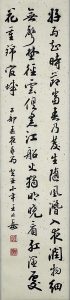 好雨知時節當春乃發生隨風潛入夜潤物細
無聲野徑雲俱黑江船火獨明曉看紅濕處
花重錦官城